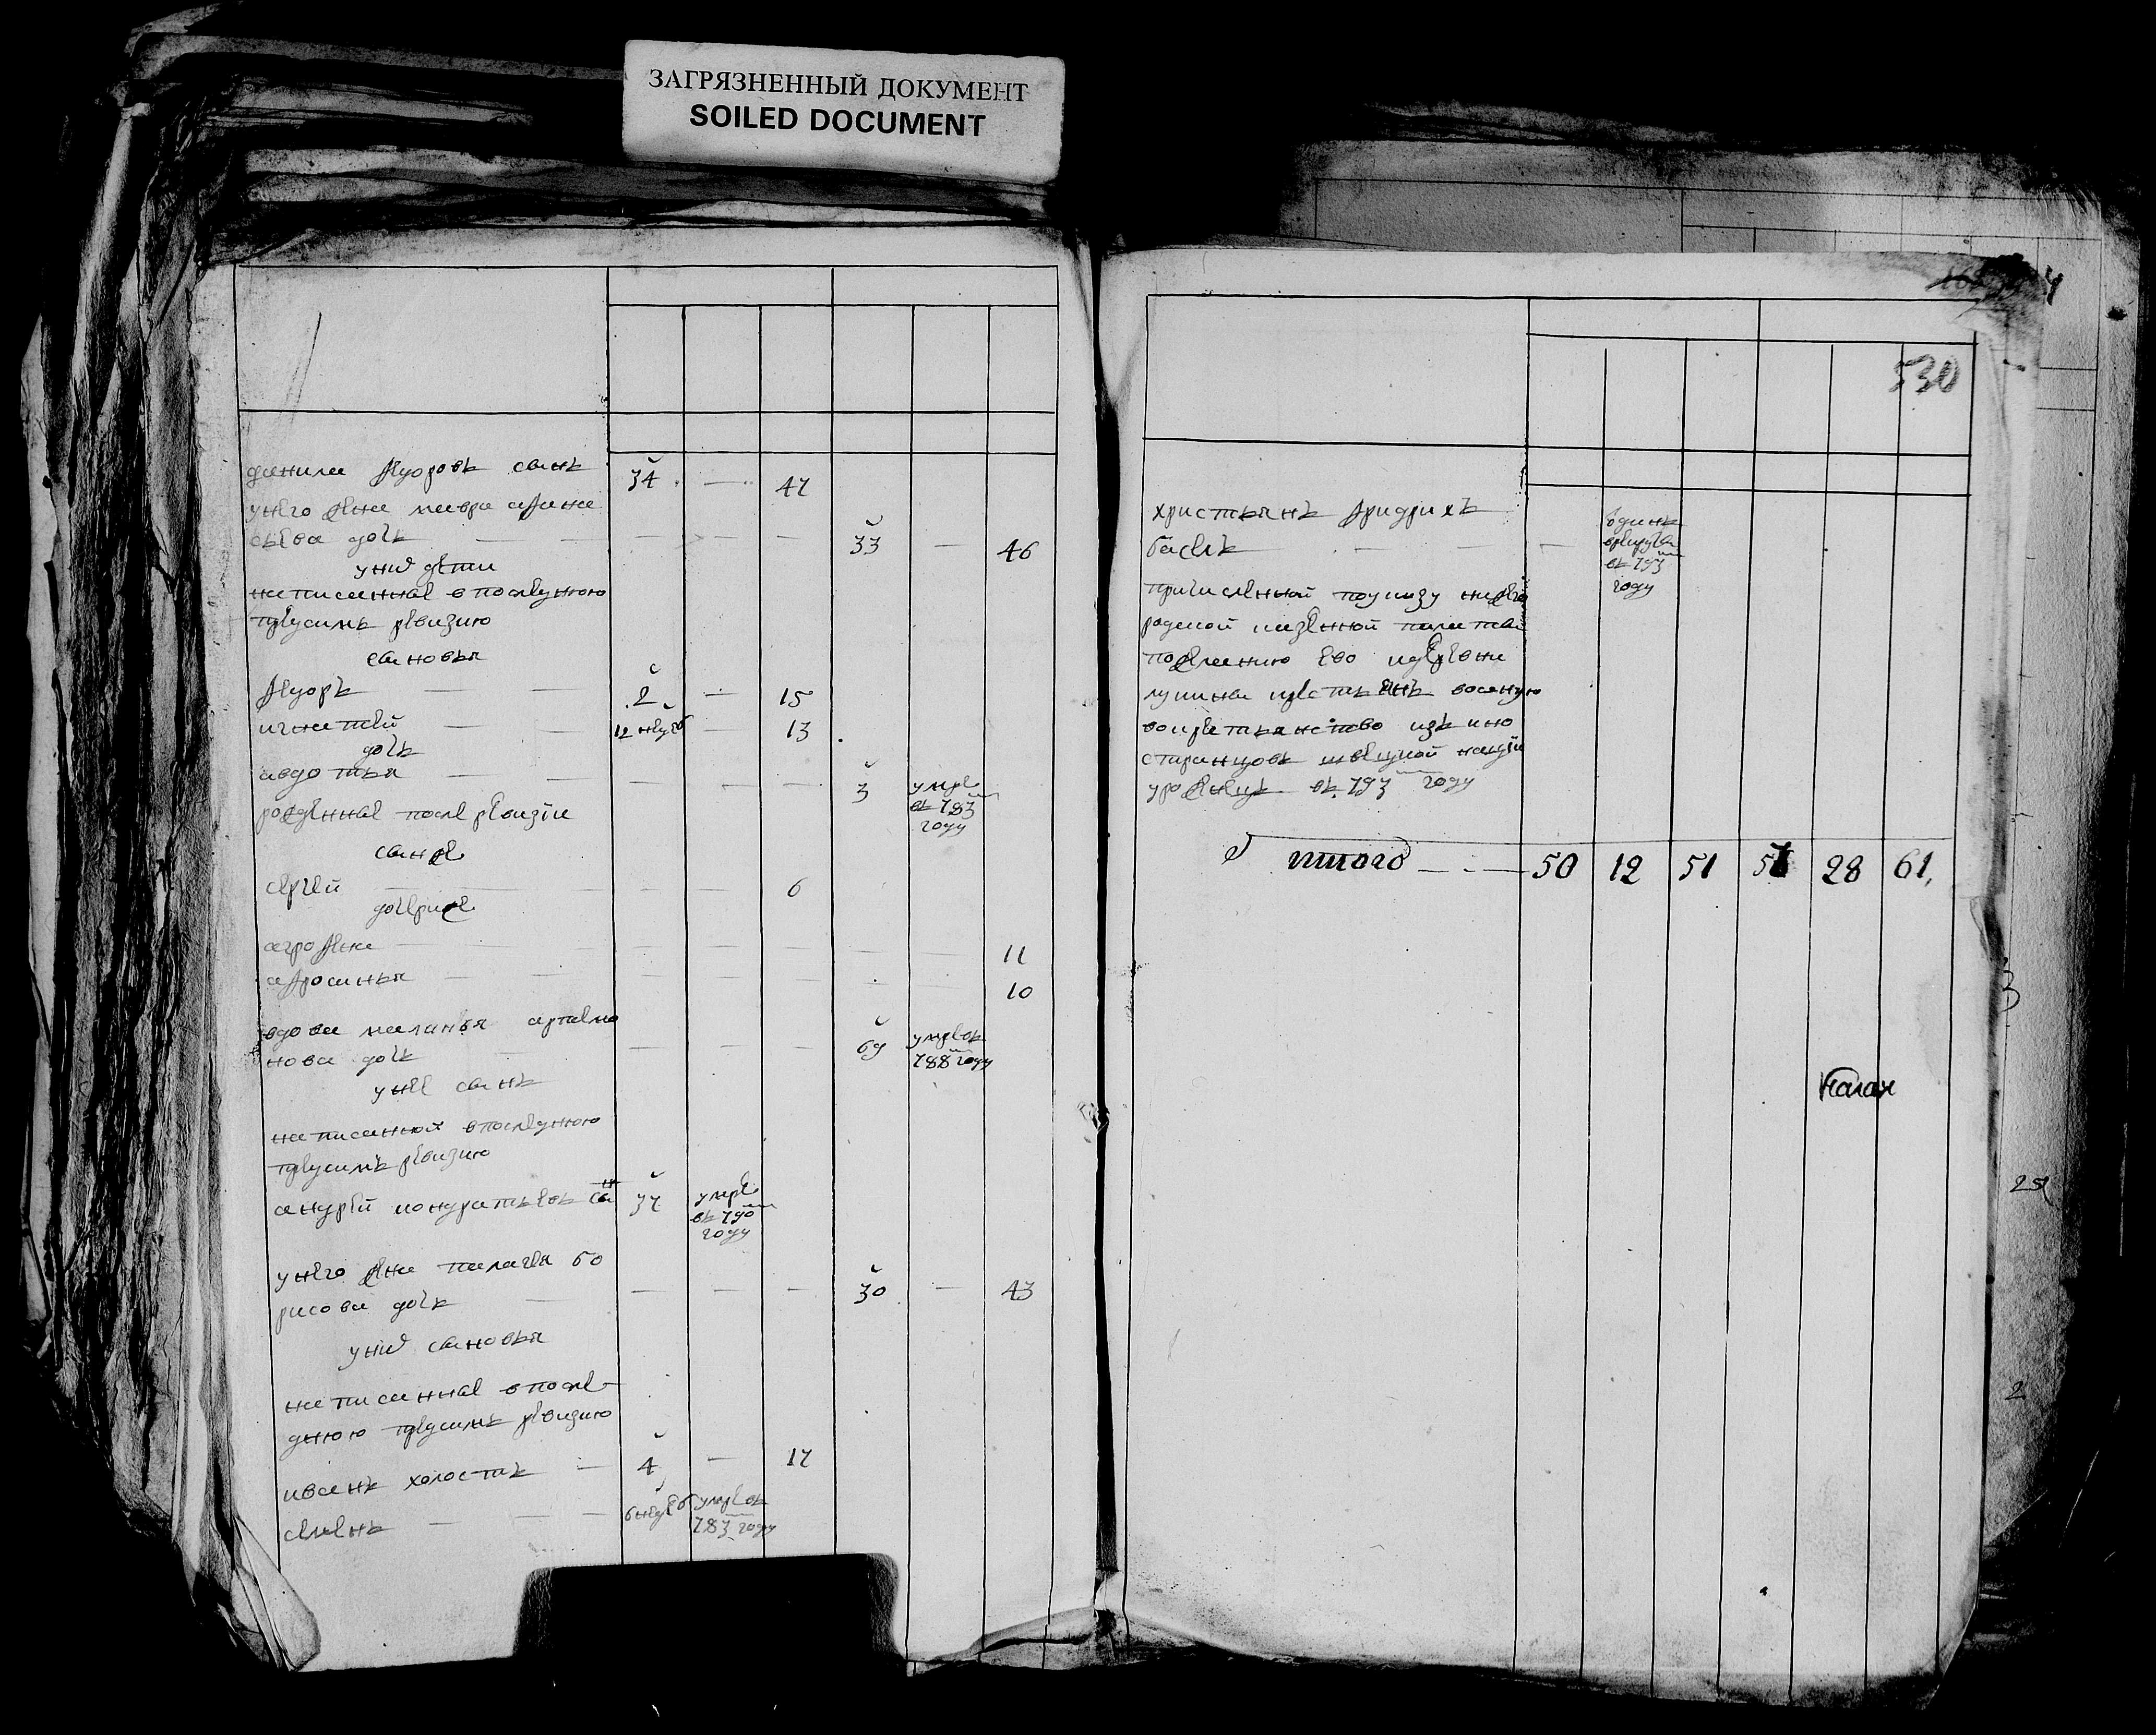 ЗАГРЯЗНЕННЫЙ ДОКУМЕНТ
SOILED DOCUMENT
данила федоровъ сынъ 34 — 47
унего жена мавра афана
сьева дочь — — — 33 — 46
уних дети
написанные впоследнюю
предсимъ ревизию
сыновья
федоръ — — 2 — 15
игнатей — — 12 недель — 13
дочь
авдотья — — — — — 3 умре
въ 783
году
рожденные после ревизiи
сынъ же
сергей — — — — 6
дочери же
агрофена — — — — — — 11
афросинья — — — — — — 10
вдова маланья артамо
нова дочь — — — 69 умре въ
788 году
унее сынъ
написанной впоследнюю
предсимъ ревизию
андрей кондратьевъ сынъ 37 умре
въ 790
году
унего жена палагея бо
рисова дочь — — — — 30 — 43
уних сыновья
написанные впосле
днюю предсимъ ревизию
иванъ холостъ — 4 — 17
семенъ — — — 6 недель умре въ
783 году
530
христьянъ фридрихъ
басель — — —
въ 793
году
причисленной поуказу нижего
родской казенной палаты
пожеланию ево кдеревни
лукина крестьянъ восную
вокрестьянство изъ ино
странцовъ шведской нацiи
уроженецъ въ 793 году
итого — — 50 12 51 57 28 61
3
2